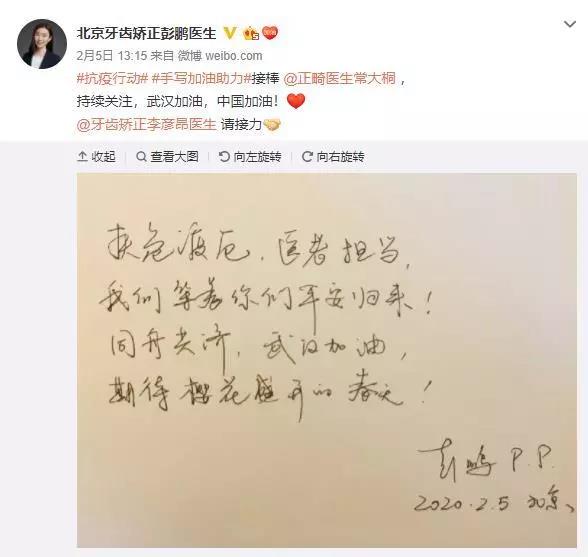 北京牙齿矫正彭鹏医生
2月5日 13:15 来自 微博 weibo.com
#抗疫行动# #手写加油助力#接棒 @正畸医生常大桐，
持续关注，武汉加油，中国加油！
@牙齿矫正李彦昂医生 请接力
收起 查看大图 向左旋转 向右旋转
扶危渡厄，医者担当，
我们等着你们平安归来！
同舟共济，武汉加油，
期待樱花盛开的春天！
彭鹏 P.P.
2020.2.5 北京